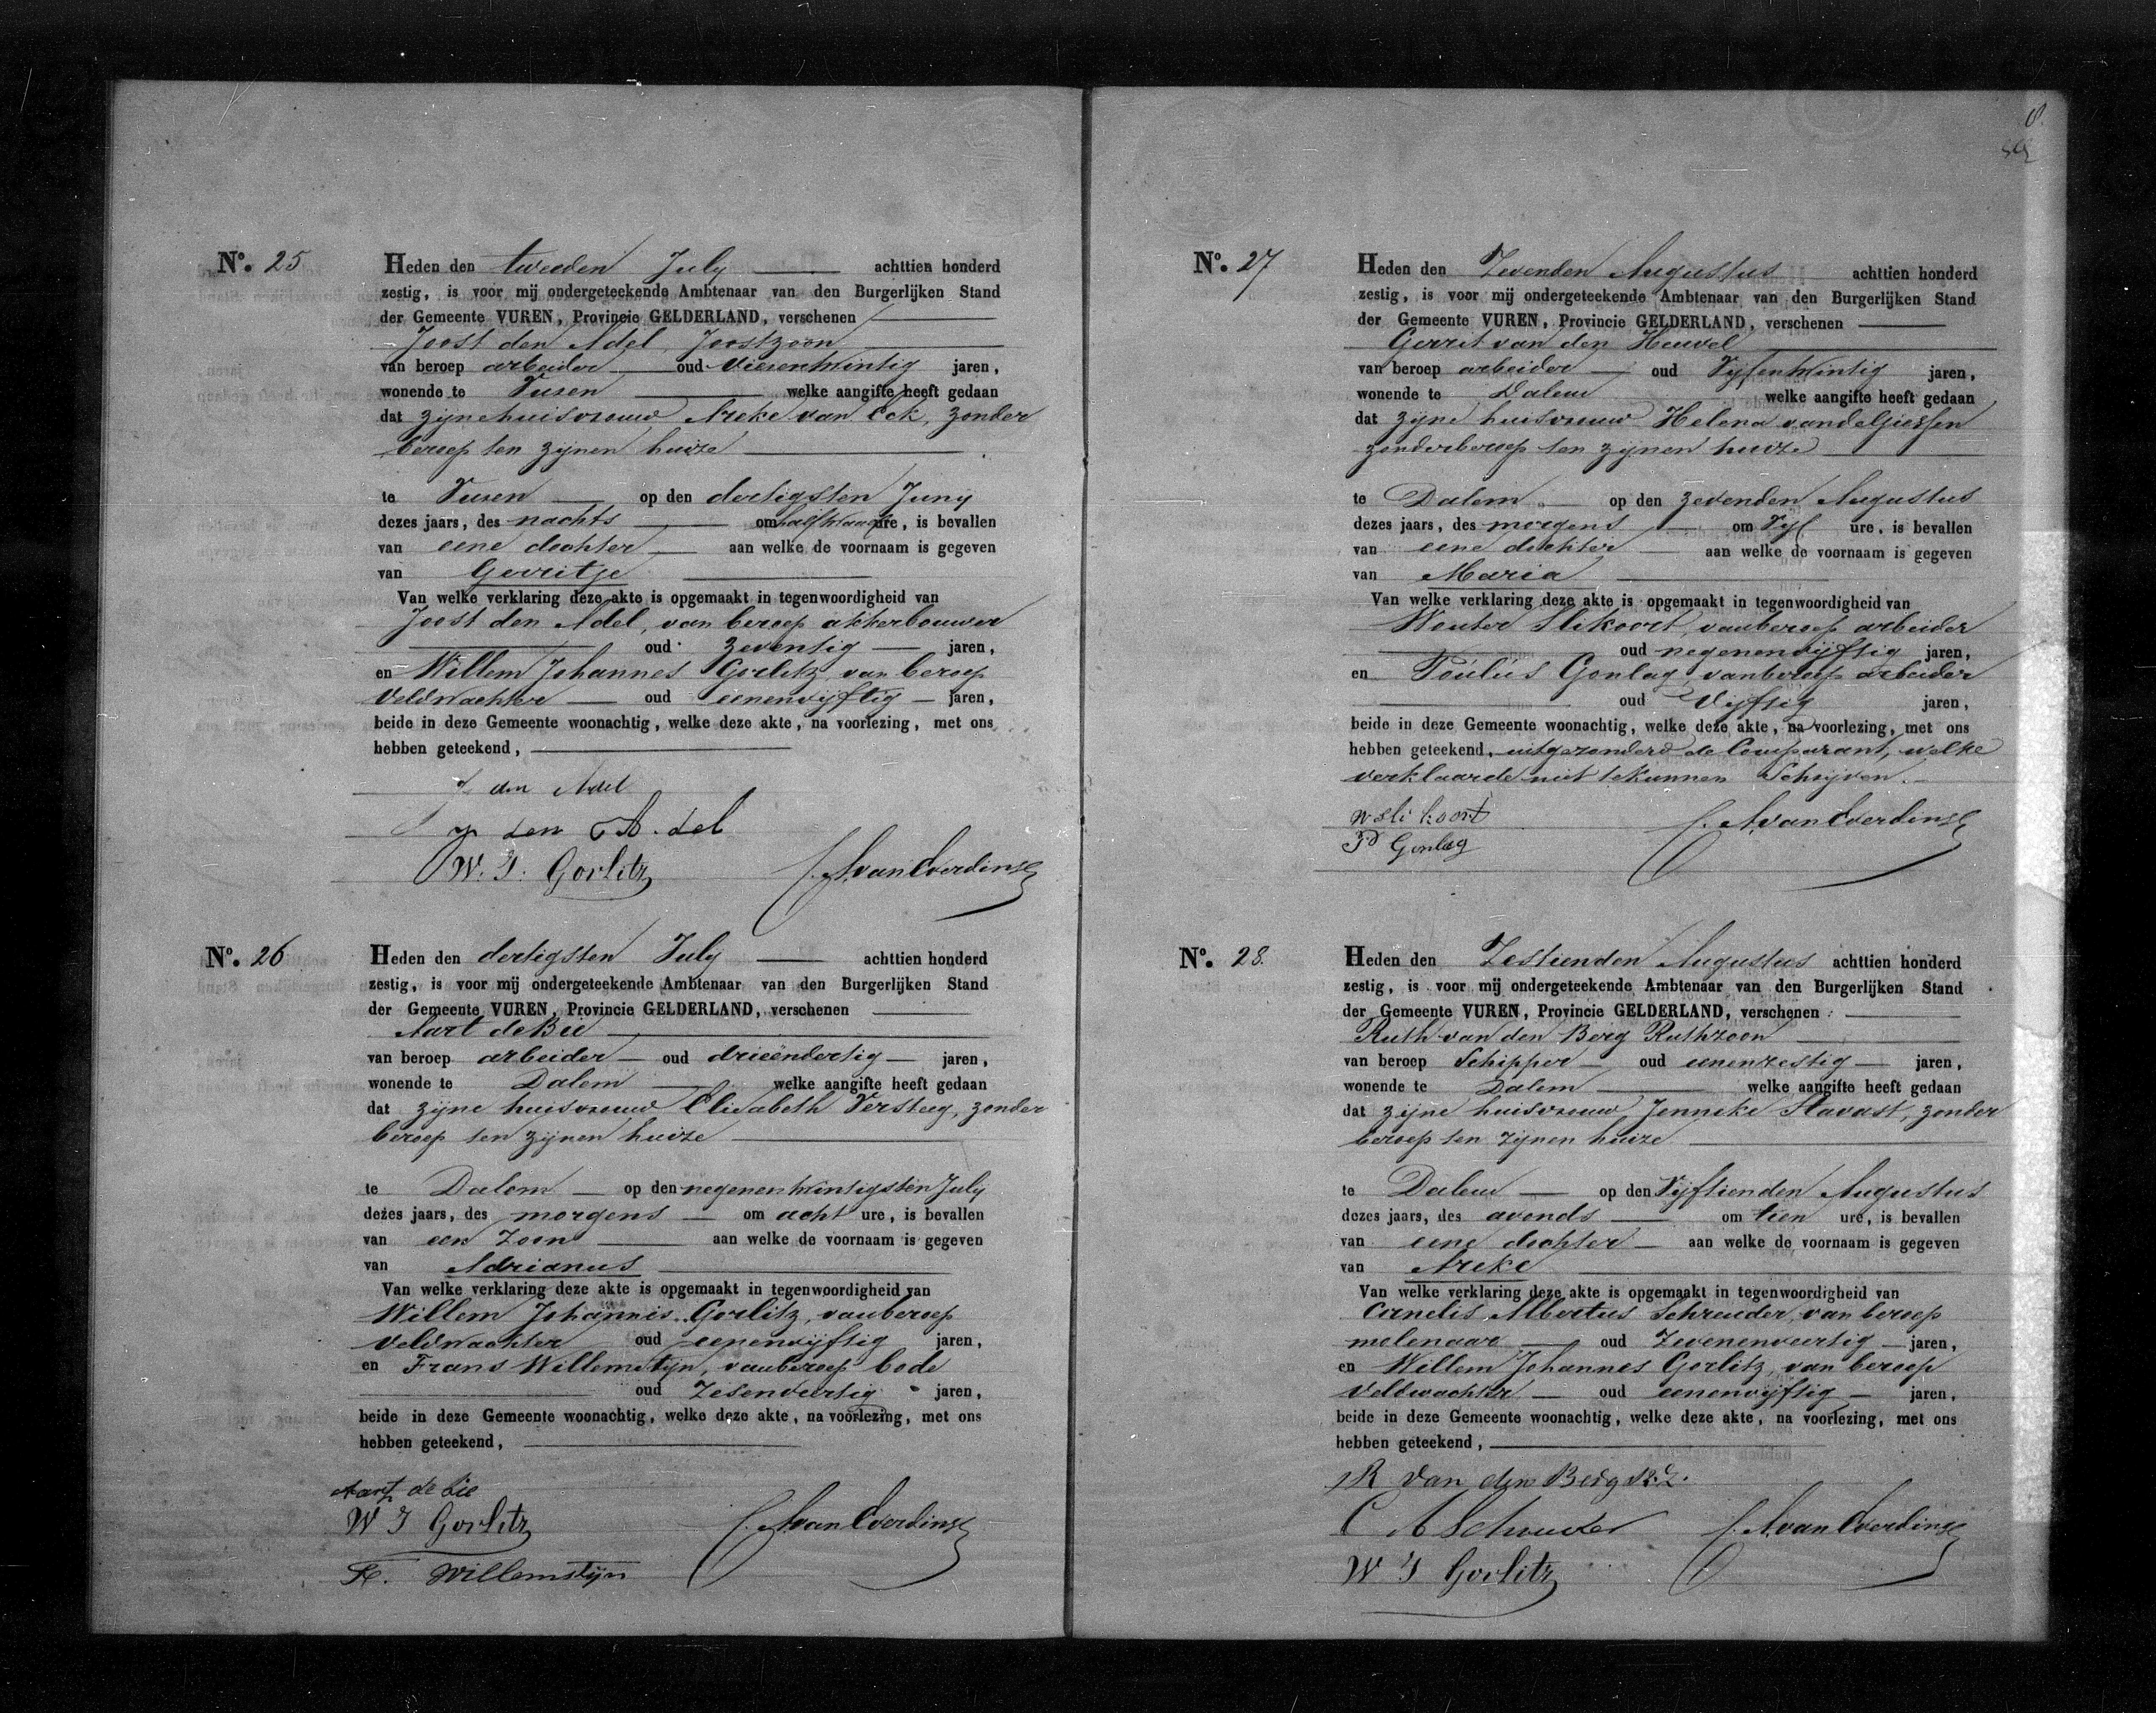 No. 25
Heden den tweeden July achttien honderd
zestig, is voor mij ondergeteekende Ambtenaar van den Burgerlijken Stand
der Gemeente VUREN, Provincie GELDERLAND, verschenen
Joost den Adel, Joostzoon
van beroep arbeider oud vierentwintig jaren,
wonende te Vuren welke aangifte heeft gedaan
dat zijne huisvrouw Areke van Eck, zonder
beroep ten zijnen huize
te Vuren op den dertigsten Juny
dezes jaars, des nachts om half twaalf ure, is bevallen
van eene dochter aan welke de voornaam is gegeven
van Gerritje
Van welke verklaring deze akte is opgemaakt in tegenwoordigheid van
Joost den Adel, van beroep akkerbouwer
oud zeventig jaren,
en Willem Johannes Gorlitz, van beroep
Veldwachter oud eenenvijftig jaren,
beide in deze Gemeente woonachtig, welke deze akte, na voorlezing, met ons
hebben geteekend,
J. den Adel
J den A. del
W. J. Gorlitz A. van Everdinge
No. 26
Heden den dertigsten July achttien honderd
zestig, is voor mij ondergeteekende Ambtenaar van den Burgerlijken Stand
der Gemeente VUREN, Provincie GELDERLAND, verschenen
Aart de Bie
van beroep arbeider oud drieëndertig jaren,
wonende te Dalem welke aangifte heeft gedaan
dat zijne huisvrouw Elisabeth Versteeg, zonder
beroep ten zijnen huize
te Dalem op den negenentwintigsten July
dezes jaars, des morgens om acht ure, is bevallen
van een Zoon aan welke de voornaam is gegeven
van Adrianus
Van welke verklaring deze akte is opgemaakt in tegenwoordigheid van
Willem Johannis Gorlitz, van beroep
Veldwachter oud eenenvijftig jaren,
en Frans Willemstijn, van beroep bode
oud Zesenveertig jaren,
beide in deze Gemeente woonachtig, welke deze akte, na voorlezing, met ons
hebben geteekend,
Aart de bie
W J Gorlitz A. van Everdinge
F. Willemstijn
No. 27
Heden den Zevenden Augustus achttien honderd
zestig, is voor mij ondergeteekende Ambtenaar van den Burgerlijken Stand
der Gemeente VUREN, Provincie GELDERLAND, verschenen
Gerrit van den Heuvel
van beroep arbeider oud Vijfentwintig jaren,
wonende te Dalem welke aangifte heeft gedaan
dat zijne huisvrouw Helena van del Giessen
zonder beroep ten zijnen huize
te Dalem op den zevenden Augustus
dezes jaars, des morgens om Vijf ure, is bevallen
van eene dochter aan welke de voornaam is gegeven
van Maria
Van welke verklaring deze akte is opgemaakt in tegenwoordigheid van
Wouter Slikoort, van beroep arbeider
oud negenenvijftig jaren,
en Poulus Gonlag, van beroep arbeider
oud Vijftig jaren,
beide in deze Gemeente woonachtig, welke deze akte, na voorlezing, met ons
hebben geteekend, uitgezonderd de Comparant, welke
verklaarde niet te kunnen Schrijven.
W Slikoort A. van Everdinge
P Gonlag
No. 28.
Heden den Zestienden Augustus achttien honderd
zestig, is voor mij ondergeteekende Ambtenaar van den Burgerlijken Stand
der Gemeente VUREN, Provincie GELDERLAND, verschenen
Ruth van den Berg Ruthzoon
van beroep Schipper oud eenenzestig jaren,
wonende te Dalem welke aangifte heeft gedaan
dat zijne huisvrouw Jenneke Stavast, zonder
beroep ten zijnen huize
te Dalem op den Vijftienden Augustus
dezes jaars, des avonds om tien ure, is bevallen
van eene dochter aan welke de voornaam is gegeven
van Areke
Van welke verklaring deze akte is opgemaakt in tegenwoordigheid van
Cornelis Albertus Schreuder, van beroep
molenaar oud Zevenenveertig jaren,
en Willem Johannes Gorlitz, van beroep
Veldwachter oud eenenvijftig jaren,
beide in deze Gemeente woonachtig, welke deze akte, na voorlezing, met ons
hebben geteekend,
R van den Berg R.Z.
C A Schreuder A. van Everdinge
W J Gorlitz